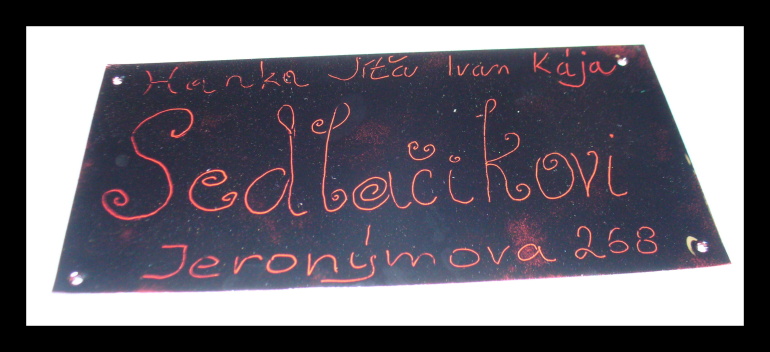 Hanka Jíťa Ivan Kája
Sedlačikovi
Jeronýmova 268